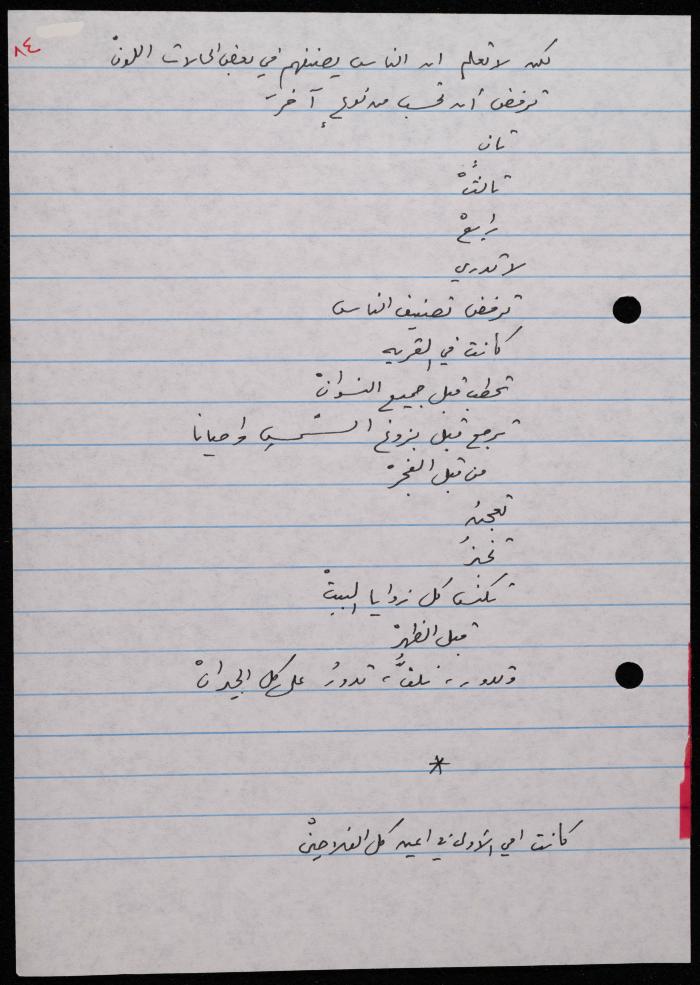 ٨٤
لكن لا تعلم ان الناس يصنفهم في بعض الحالات اللونْ
ترفض أن تحسب من نوعٍ آخرَ
ثانٍ
ثالثٍْ
رابعْ
لا تدري
ترفض تصنيف الناس
كانت في القريه
تحطب قبل جميع النسوانْ
ترجع قبل بزوغ الشّمسِ واحيانا
من قبل الفجرْ
تعجنُ
تخبزُ
تكنس كل زوايا البيتْ
قبل الظهرْ
وتدور، تلفُّ، تدورُ على كل الجدرانْ
*
كانت امي الأولى في اعين كل الفلاحينْ